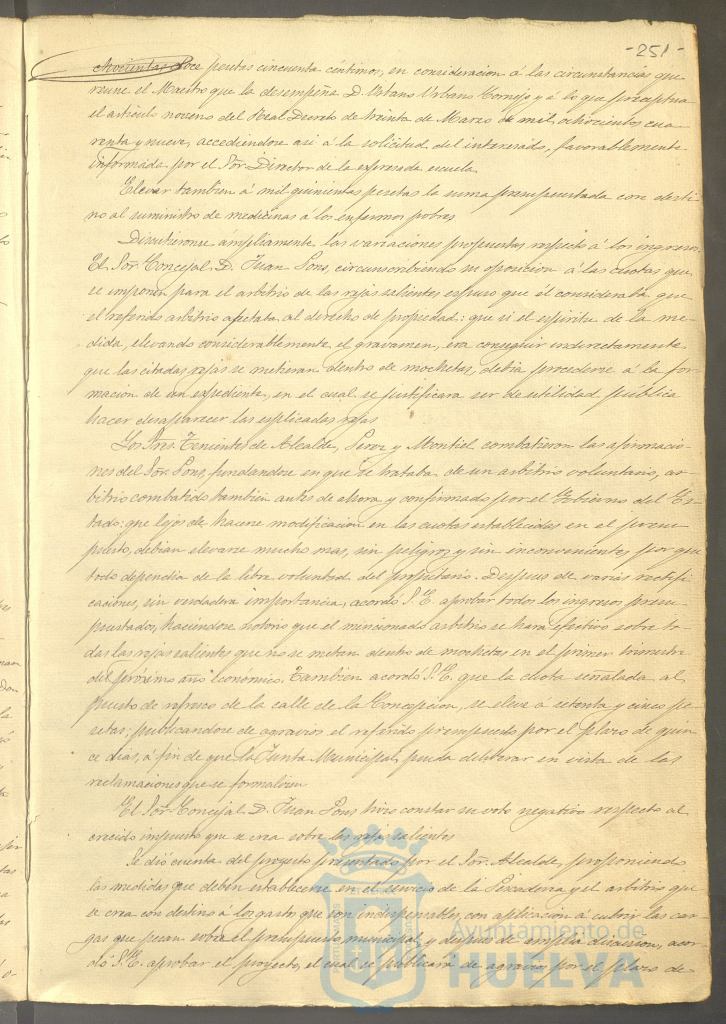 -251-
ochocientas doce pesetas cincuenta céntimos, en consideracion á las circunstancias que
reune el Maestro que la desempeña D. Urbano Cornejo y á lo que preceptua
el artículo noveno del Real Decreto de treinta de Marzo de mil ochocientos cua-
renta y nueve, accediendose asi á la solicitud del interesado, favorablemente
informada por el Sor. Director de la expresada escuela.
Elevar tambien á mil quinientas pesetas la suma presupuestada con desti-
no al suministro de medicinas á los enfermos pobres
Discutieronse ámpliamente las variaciones propuestas respecto á los ingresos.
El Sor. Concejal D. Juan Pons, circunscribiendo su oposicion á las cuotas que
se imponen para el arbitrio de las rejas salientes espuso que él consideraba que
el referido arbitrio afectaba al derecho de propiedad: que si el espíritu de la me-
dida, elevando considerablemente el gravamen, era conseguir indirectamente
que las citadas rejas se metieran dentro de mochetas, debia procederse á la for-
macion de un expediente, en el cual se justificara ser de utilidad pública
hacer desaparecer las esplicadas rejas
Los Sres. Tenientes de Alcalde, Perez y Montiel combatieron las afirmacio-
nes del Sor. Pons, fundandose en que se trataba de un arbitrio voluntario, ar-
bitrio combatido tambien antes de ahora y confirmado por el Gobierno del Es-
tado: que lejos de hacerse modificacion en las cuotas establecidas en el presu-
puesto, debian elevarse mucho mas, sin peligros y sin inconvenientes por que
todo dependia de la libre voluntad del propietario. Despues de varias rectifi-
caciones, sin verdadera importancia, acordó S. E. aprobar todos los ingresos presu-
puestados, haciendose notorio que el mencionado arbitrio se hara efectivo sobre to-
das las rejas salientes que no se metan dentro de mochetas en el primer trimestre
del próximo año económico. Tambien acordó S. E. que la cuota señalada al
puesto de refresco de la calle de la Concepcion, se eleve á setenta y cinco pe-
setas; publicandose de agravios el referido presupuesto por el plazo de quin-
ce dias, á fin de que la Junta Municipal pueda deliberar en vista de las
reclamaciones que se formalicen
El Sor. Concejal D. Juan Pons hizo constar su voto negativo respecto al
crecido impuesto que se crea sobre las rejas salientes
Se dió cuenta del proyecto presentado por el Sor. Alcalde, proponiendo
las medidas que deben establecerse en el servicio de la Pescaderia y el arbitrio que
se crea con destino á los gastos que son indispensables, con aplicacion á cubrir las car-
gas que pesan sobre el presupuesto municipal, y despues de amplia discusion, acor-
dó S. E. aprobar el proyecto, el cual se publicará de agravios por el plazo de
Ayuntamiento de
HUELVA